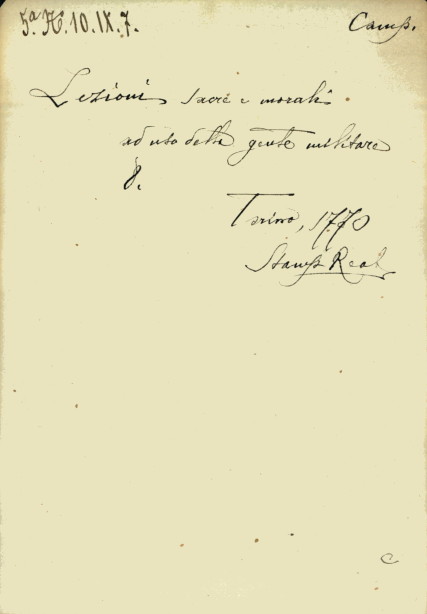 5.ª H. 10. IX. 7. Camp.
Lezioni sacre e morali
ad uso della gente militare
8.
Torino, 1770
Stamp Real
C